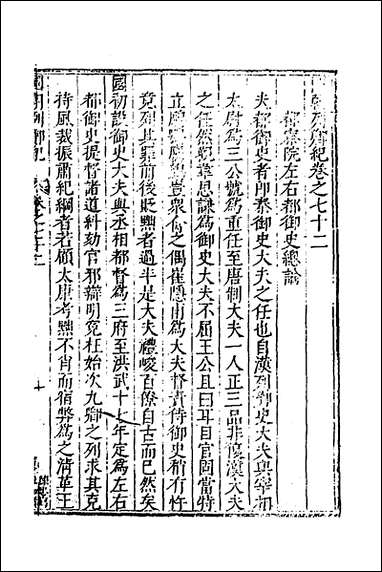 國朝列卿紀卷之七十二
都察院左右都御史總論
夫都御史者即秦御史大夫之任也自漢列御史大夫與宰相
太尉為三公號為重任至唐制大夫一人正三品非復漢大夫
之任然觀韋思謙為御史大夫不屈王公且曰耳目官固當特
立鵰鶚鷹鸇豈衆禽之偶崔隱甫為大夫督責侍御史稍有忤
竟列其罪前後貶黜者過半是大夫禮峻百僚自古而已然矣
國初設御史大夫與丞相都督為三府至洪武十七年定為左右
都御史提督諸道糾劾官邪辯明冤枉始次九卿之列求其克
持風裁振肅紀綱者若顧太康考黜不肖而宿弊為之清革王
國朝列卿紀 卷之七十二